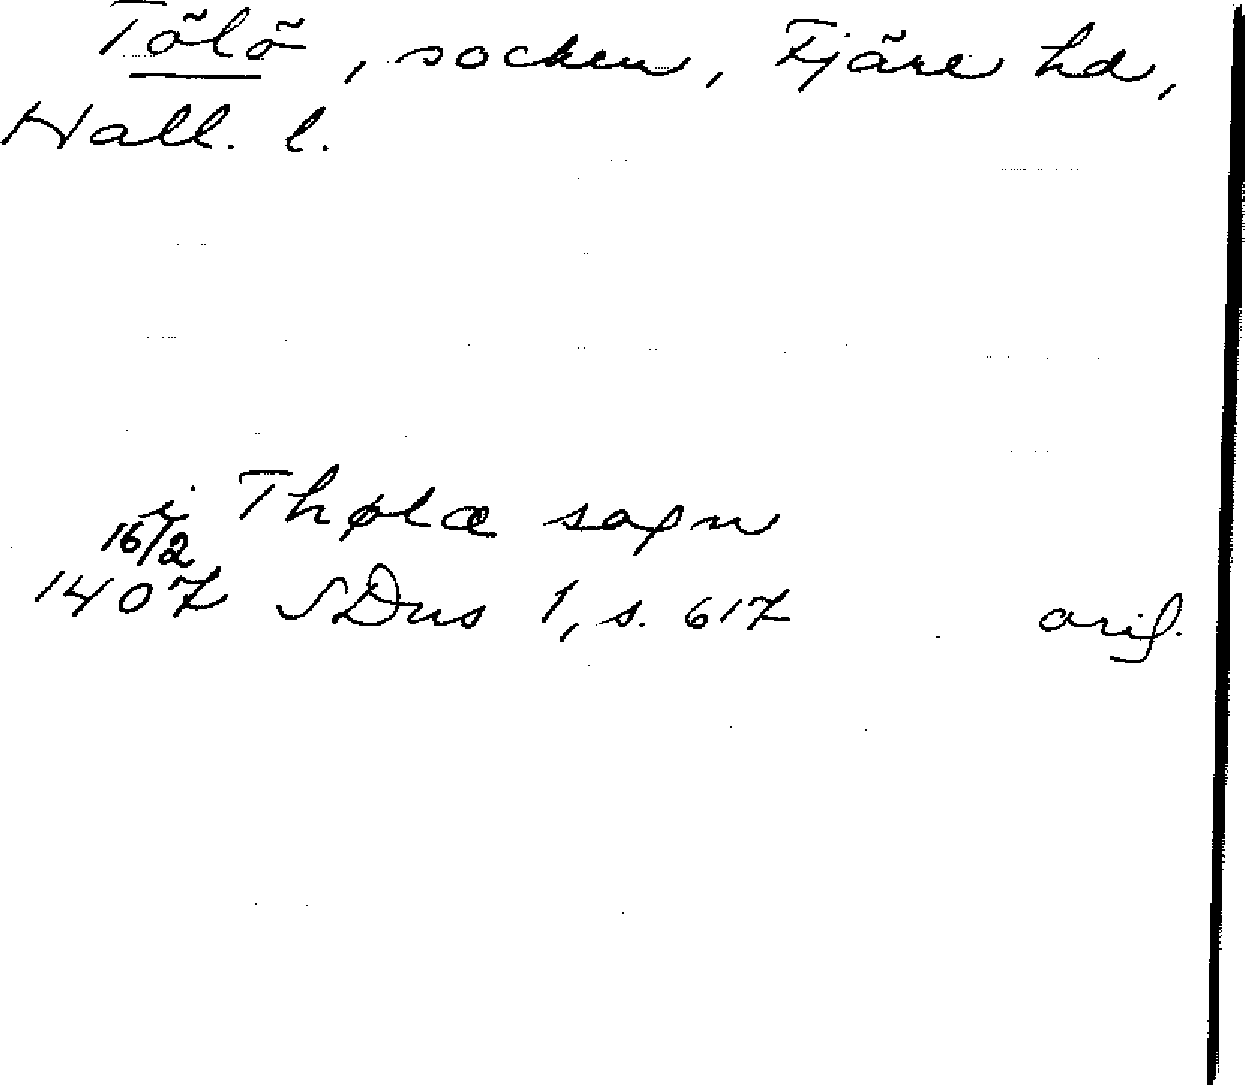 Tölö, socken, Fjäre hd,
Hall. l.
i Thølæ sogn
16/2
1407 SDns 1, s. 617 orig.